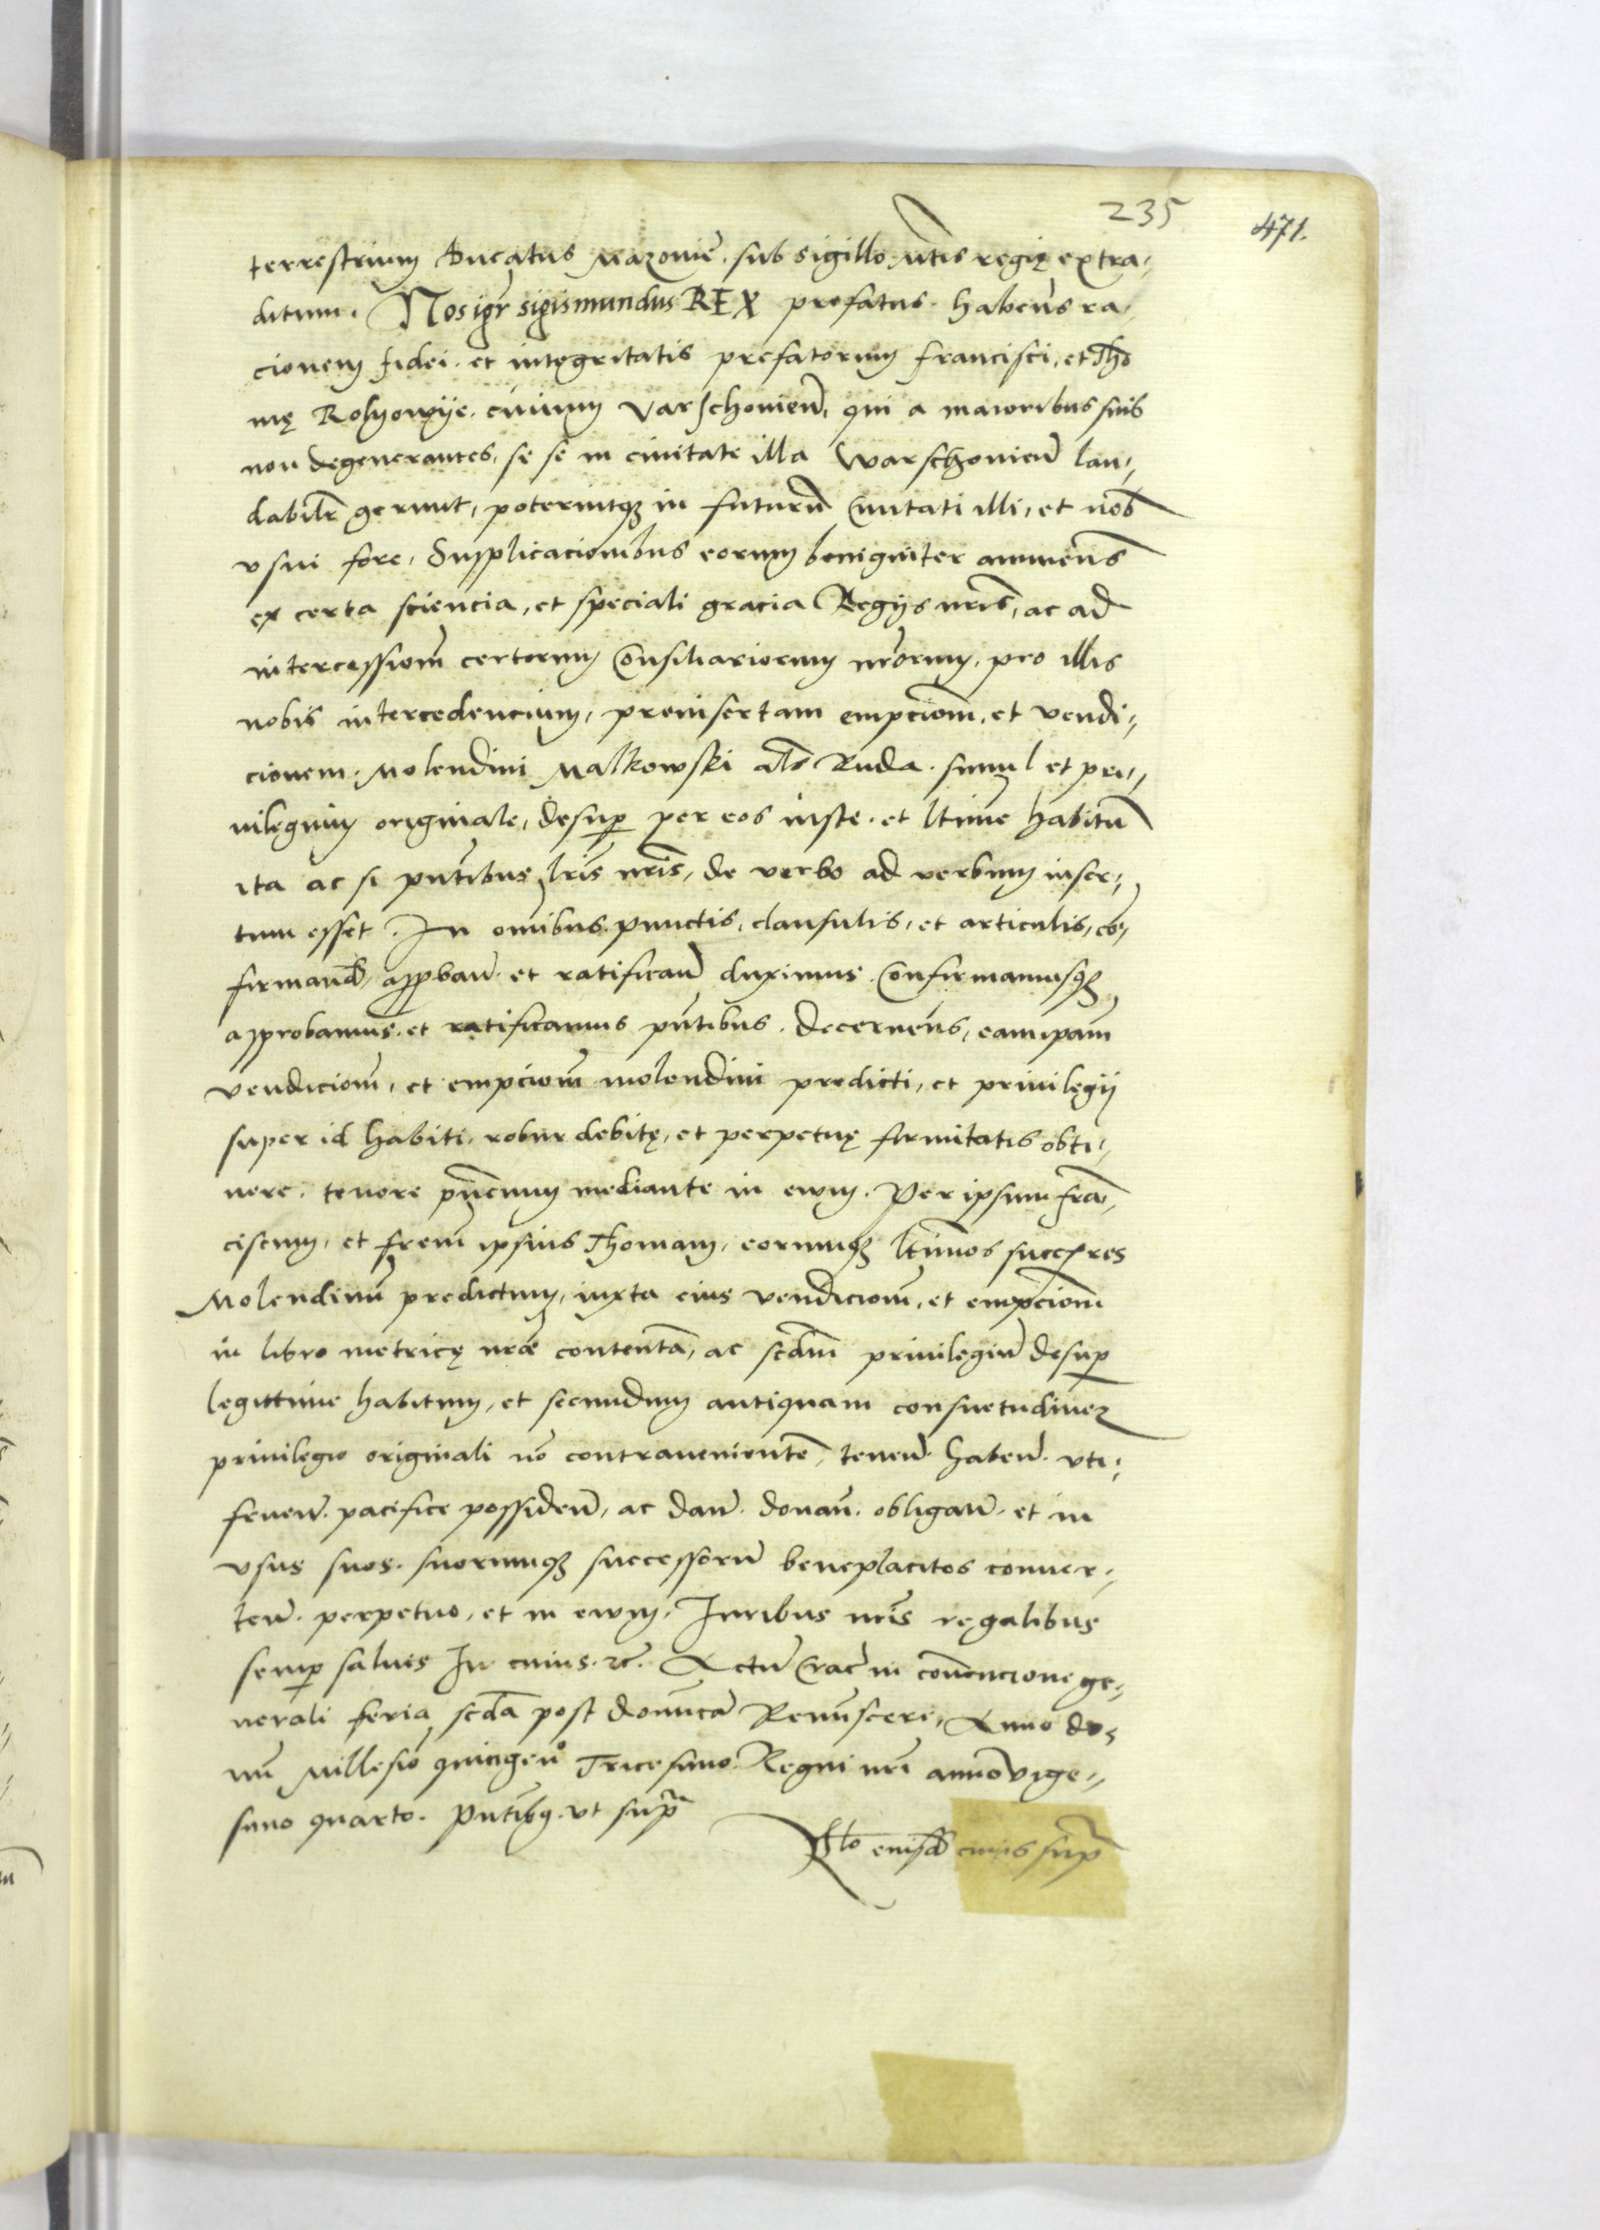 235
471.
terrestrium Ducatus Mazoviē. sub sigillo Mtis regię extra„
ditum. Nos igr̄ Sigismundus REX prefatus. habeñs ra„
cionem fidei. et integritatis prefatorum Francisci, et Tho
mę civium Varschovieñ, qui a maioribus suis
non degenerantes, se se in civitate illa Warschovieñ lau„
dabilr̄ gerunt, poteruntqȝ in futurū Civitati illi, et nob̄
usui fore. Supplicacionibus eorum benigniter annueñs
ex certa sciencia, et speciali gracia Regiis nr̄is, ac ad
intercessiom̄ certorum Consiliariorum nr̄orum, pro illis
nobis intercedencium, preinsertam empciom̄, et vendi„
cionem. Molendini Malkowski als̄ Ruda. simul et pri„
vilegium originale, desup̱ per eos iuste. et ltime habitū
ita ac si pn̄tibus lr̄is nr̄is, de verbo ad verbum inser„
tum esset. In omībus. punctis, clausulis, et articulis, cō„
firmand̄, app̱bań. et ratificań duximus. Confirmamusqȝ
approbamus. et ratificamus pn̄tibus. Decerneñs, eamip̄am
vendiciom̄, et empciom̄ molendini predicti, et privilegii
super id habiti. robur debitę, et perpetuę firmitatis obti„
nere. tenore pn̄cium mediante in ewm. Per ipsum Frā„
ciscum, et frem̄ ipsius Thomam, eorumqȝ ltimos succēres
Molendinū predictum, iuxta eius vendiciom̄, et empciom̄
in libro metricę nr̄æ contentā, ac scdm̄ privilegiū desup̱
legittime habitum, et secundum antiquam consuetudineȝ
privilegio originali nō contravenientē, teneń. habeń. uti„
frueń. pacifice possideń, ac dań. donań. obligań. et in
usus suos. suorumqȝ successorū beneplacitos conver„
teń. perpetuo, et in ewm. Iuribus nr̄is regalibus
semp̱ salvis In cuius. rc̄. Actū Crac̄ in convencione ge„
nerali feria scd̄a post dominicā Reminiscere, Anno do„
mī Millesiō quingenº Tricesimo. Regni nr̄i anno vige„
simo quarto. Pn̄tibȝ. ut supᵃ
Rlo eiusd̄ cuius supᵃ